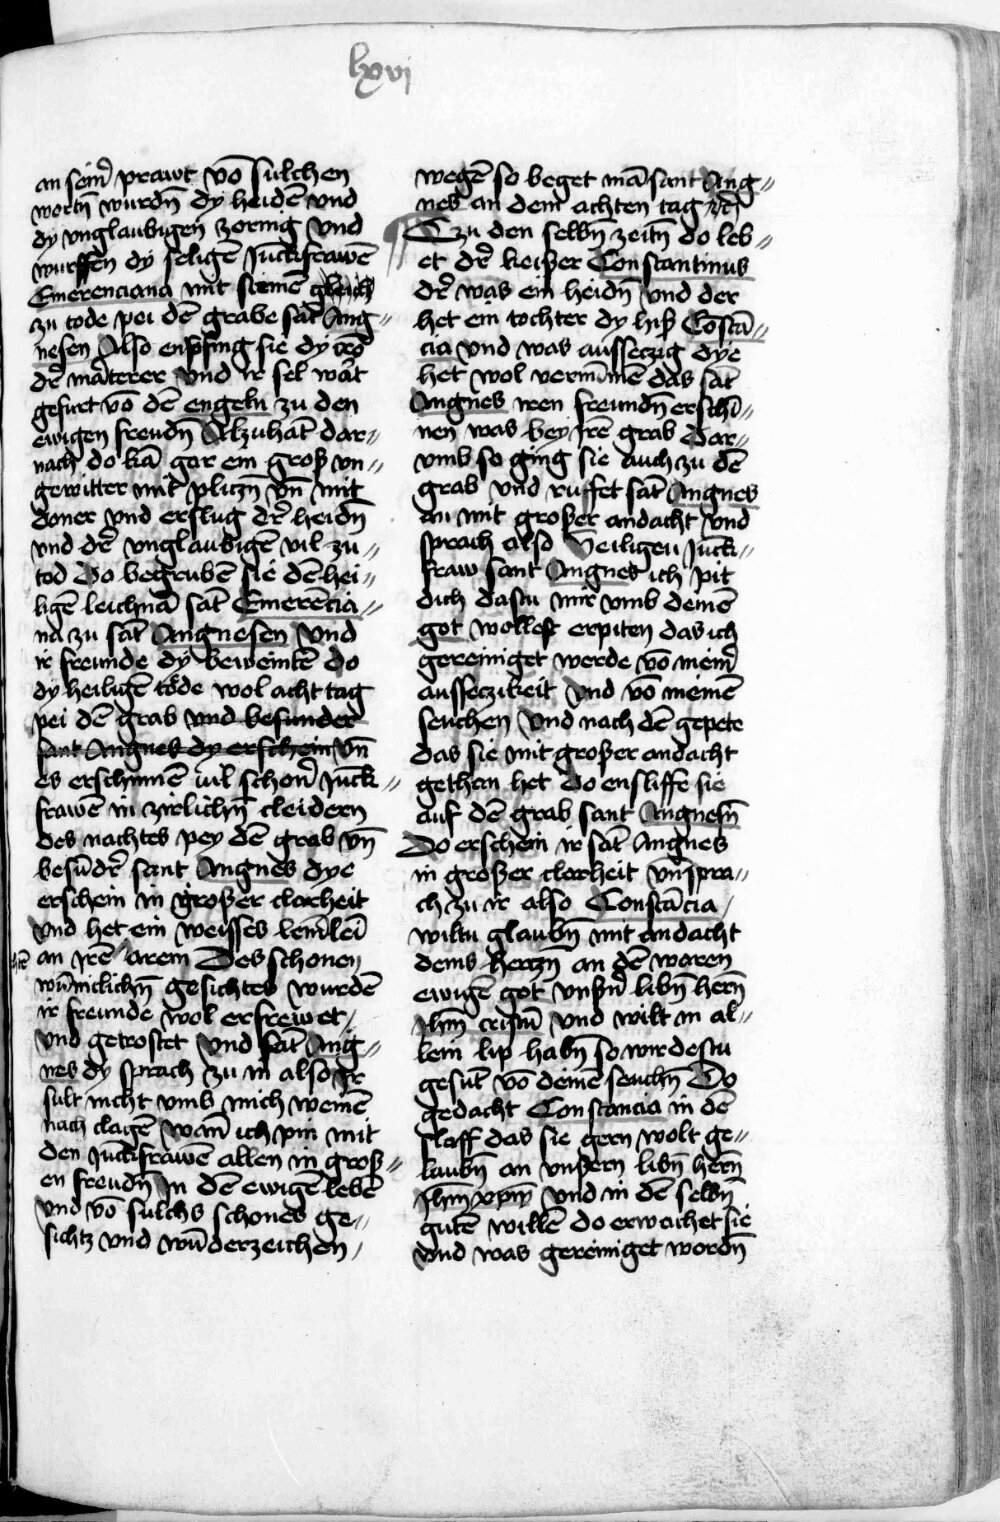 lxvi
an seim̄ prawt vō sulchen
wortn̄ wurdn̄ dy heidē vnd
dy vnglaubigen zornig vnd
wurffen dy seligē Junckfrawē
Emerenciana mit stemē gleich
zu tode pei dē grabe sāt Ang〃
nesen Also enpfing sie dy krō
dr̄ māterer vnd ir sel wāt
gefurt vō dē engeln zu den
ewigen freudn̄ Alzuhāt dar〃
nach do kā gar ein groß vn〃
gewitter mit pliczn̄ vn̄ mit
doner vnd erslug dr̄ heidn̄
vnd dr̄ vnglaubigē vil zu〃
tod Do begrubē sie dē hei〃
ligē leichnā sāt Emerēcia〃
na zu sāt Angnesen vnd
ir freunde dy beweintē do
dy heiligē tode wol acht tag
pei dē grab vnd besunder
sant Angnes dy erschein vn̄
es erschinnē vil schon̄ Junck〃
frawē in zirlichn̄ cleidern
des nachtes pey dē grab vn̄
besūdr̄ sant Angnes dye
erschein in großer clarheit
vnd het ein weisses lemlei
an Jrē arem Des schonen
wūniclichn̄ gesichtes wurdē
ir freunde wol erfrewet
vnd getrostet vnd sāt Ang〃
nes dy sprach zu in also Jr
sult nicht vmb mich weinē
nach clagē wān̄ ich pin mit
den Junckfrawē allen in groß〃
en freudn̄ in dē ewigē lebē
vnd vō sulchs schones ge〃
sichtz vnd wūderzeichen
wegē so beget mā sant Ang〃
nes an dem achten tag
Czu den selbn̄ zeitn̄ do leb〃
et dr̄ keißer Constantinus
dr̄ was ein heidn̄ vnd der
het ein tochter dy hiß Costā〃
cia vnd was aussetzig dye
het wol vernūmē das sāt
Angnes iren freundn̄ erschi〃
nen was bey Jrē grab Dar〃
vmb so ging sie auch zu dē
grab vnd ruffet sāt Angnes
an mit großer andacht vnd
sprach also Heiligeu Junck〃
fraw sant Angnes ich pit
dich dastu mir vmb deinē
got wollest erpiten das ich
gereiniget werde vō meim̄
aussezikeit vnd vō meinē
seuchen vnd nach dē gepete
das sie mit großer andacht
gethan het Do ensliffe sie
auf dē grab sant Angnesn̄
Do erschein ir sāt Angnes
in großer clarheit vn̄ spra〃
ch zu ir also Constācia
wiltu glaubn̄ mit andacht
deins herczn̄ an dē waren
ewigē got vnsn̄ libn̄ hern̄
Jhm̄ cristū vnd wilt in al〃
lein lip habn̄ so wirdestu
gesūt vō deinē seuchn̄ Do
gedacht Constancia in dē
slaff das sie gern wolt ge〃
laubn̄ an vnßern libn̄ hern̄
Jhm̄ xpm̄ vnd in dē selbn̄
gutē willē do erwachet sie
vnd was gereiniget wordn̄